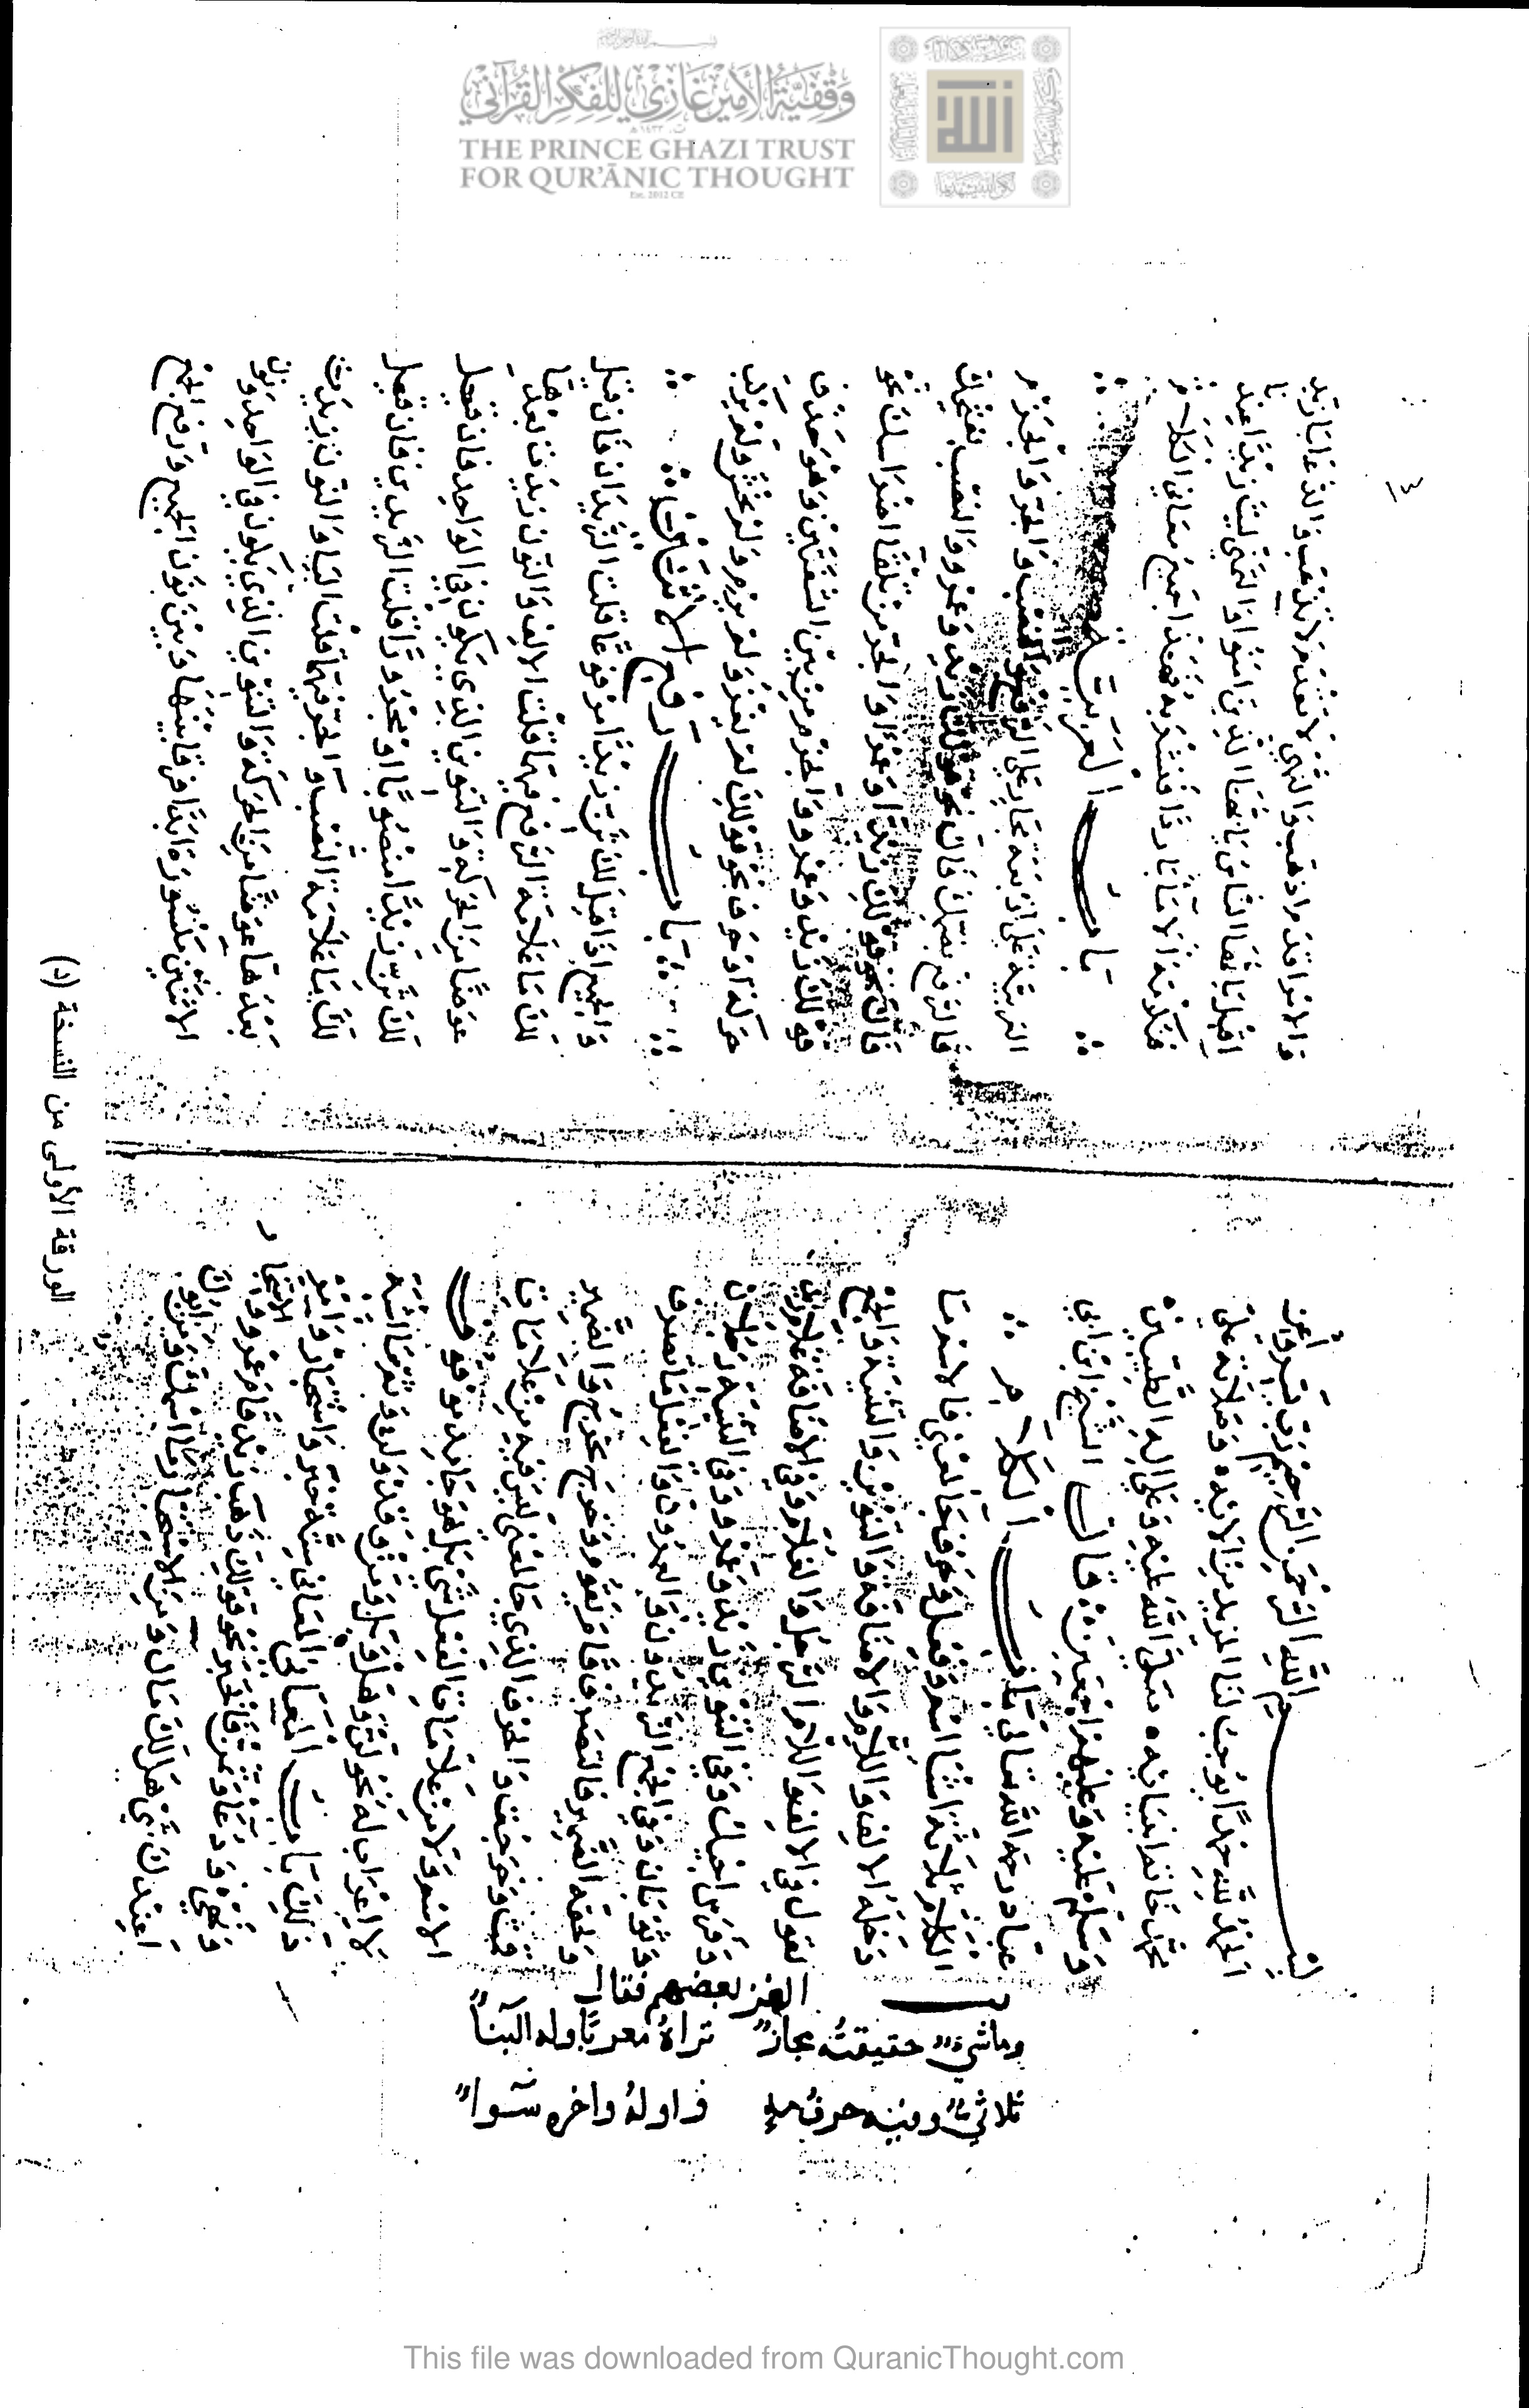 THE PRINCE GHAZI TRUST
FOR QUR'ĀNIC THOUGHT
Est. 2012 CE
وقفية الأمير غازي للفكر القرآني
بسم الله الرحمن الرحيم رب يسر وأعن
الحمد لله حمدًا يوجب لنا المزيد من الائه وصلاته على
محمد خاتم انبيائه صلى الله عليه وعلى اله الطيبين
وسلم عليه وعليهم اجمعين قال الشيخ ابن ابي
عباد رحمه الله تعالى باب الكلام
الكلام ثلاثة اشيا اسم وفعل وحرف جا لمعنى فالاسم ما
دخله الالف واللام والاضافة والتنوين والتثنية والجمع
تقول في الالف واللام الرجل والغلام وفي الاضافة غلام زيد
وفرس اخيك وفي التنوين زيد وعمرو وفي التثنية رجلان
وثوبان وفي الجمع الزيدون والعمرون والفعل ما تصرف
ولحقه الضمير فالتصرف قام يقوم وخرج يخرج والضمير
قمت وخرجت والحرف الذي جا لمعنى ليس فيه من علامات
الاسم ولا من علامات الفعل شي بل هو جامد موقوف
لا اعراب له نحو لن وهل وبل ومن وقد ولم وثم وما اشبه
ذلك باب المعاني المعاني ستة خبر واستخبار وامر
ونهي ودعا وتمن فالخبر نحو قولك ذهب زيد قام عمرو والاستخبار
اعندك شي هل لك مال ومن الاستخبار ما اسمك ومن ابوك
الغز بعضهم فقال
وماشيءٌ حقيقته مجاز تراه معربًا وله البنآ
ثلاثي ومنه حرف فاوله واخره سوآ
١٣
والامر اقعد واذهب والنهي لا تقعد ولا تذهب والدعا يا زيد
اقبل يا ايها الناس يا ايها الذين امنوا والتمني ليت زيدا عندنا
باب العربية
العربية على اربعة مجار على الرفع والنصب والجر والجزم
فالرفع بضمك فاك نحو قولك زيد وعمرو والنصب بفتحك
فاك نحو قولك زيدا وعمرا والجر من تلقا اضراسك نحو
قولك زيد وعمرو والجزم من بين الشفتين وهو حذف
حركة او حرف نحو قولك لم يغز ولم يرم ولم يخش ولم
باب رفع الاثنين
والجميع اذا قيل لك ثن زيدا مرفوعا قلت الزيدان فان قيل
لك ما علامة الرفع فيهما قلت الالف والنون زيدت بعدها
عوضا من الحركة والتنوين الذي يكون في الواحد فان قيل
لك ثن زيدا منصوبا او مجرورا قلت الزيدين فان قيل
لك ما علامة النصب والجر فيهما قلت اليا والنون زيدت
بعدها عوضا من الحركة والتنوين الذي يكون في الواحد ونون
الاثنين مكسورة ابدا فرقا بينها وبين نون الجميع ورفع الجمع
الورقة الأولى من النسخة (د)
This file was downloaded from QuranicThought.com